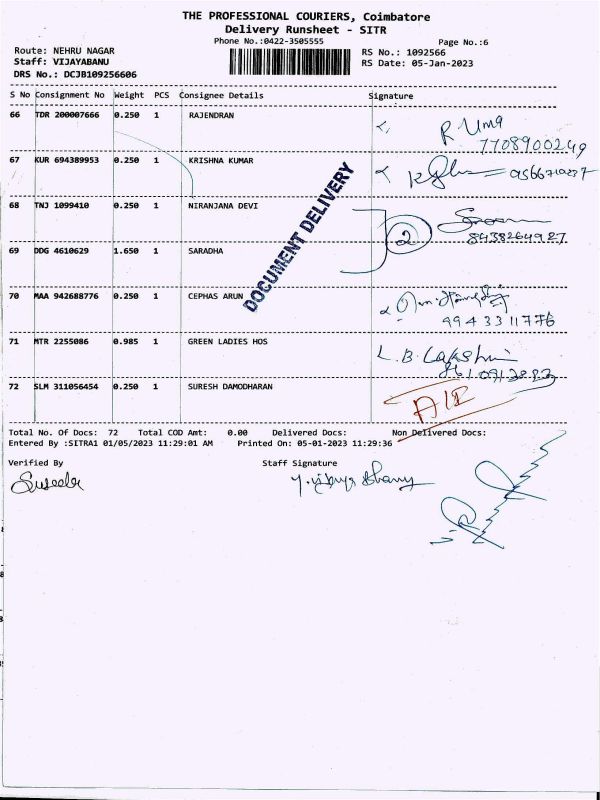 THE PROFESSIONAL COURIERS, Coimbatore
Delivery Runsheet - SITR
Phone No.:0422-3505555
Page No.:6
Route: NEHRU NAGAR
RS No.: 1092566
Staff: VIJAYABANU
RS Date: 05-Jan-2023
DRS No.: DCJB109256606
S No Consignment No Weight PCS Consignee Details Signature
66 TDR 200007666 0.250 1 RAJENDRAN R Uma
7708900249
67 KUR 694389953 0.250 1 KRISHNA KUMAR
68 TNJ 1099410 0.250 1 NIRANJANA DEVI 2
8438264927
69 DDG 4610629 1.650 1 SARADHA
DOCUMENT DELIVERY
70 MAA 942688776 0.250 1 CEPHAS ARUN
9943311776
71 MTR 2255086 0.985 1 GREEN LADIES HOS L.B. Lakshmi
72 SLM 311056454 0.250 1 SURESH DAMODHARAN
Total No. Of Docs: 72 Total COD Amt: 0.00 Delivered Docs: Non Delivered Docs:
Entered By :SITRA1 01/05/2023 11:29:01 AM Printed On: 05-01-2023 11:29:36
Verified By Staff Signature
Suseela